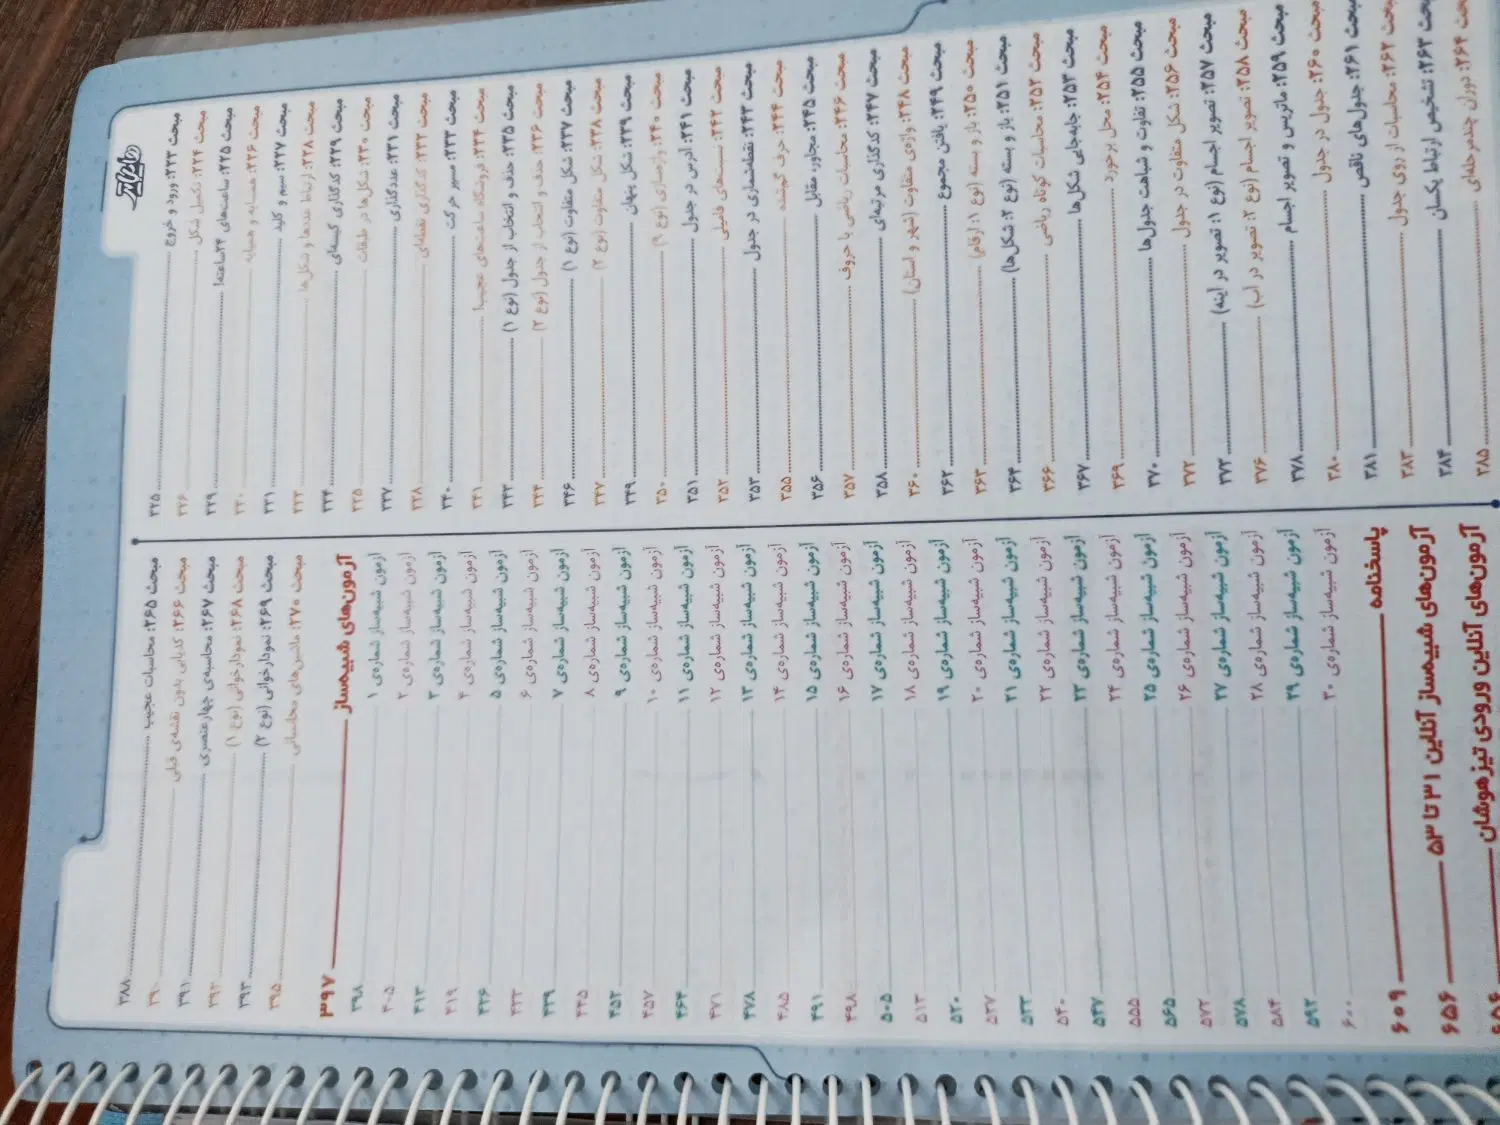 مبحث ۲۲۳: ورود و خروج ۳۲۵
مبحث ۲۲۴: تکمیل شکل ۳۲۶
مبحث ۲۲۵: ساعت‌های ۲۴ساعته! ۳۲۹
مبحث ۲۲۶: همسایه و همسایه ۳۳۰
مبحث ۲۲۷: سیم و کلید ۳۳۱
مبحث ۲۲۸: ارتباط عددها و شکل‌ها ۳۳۳
مبحث ۲۲۹: کدگذاری کیسه‌ای ۳۳۴
مبحث ۲۳۰: شکل‌ها در طبقات ۳۳۵
مبحث ۲۳۱: عددگذاری ۳۳۷
مبحث ۲۳۲: کدگذاری نقطه‌ای ۳۳۸
مبحث ۲۳۳: مسیر حرکت ۳۴۰
مبحث ۲۳۴: فروشگاه ساعت‌های عجیب! ۳۴۱
مبحث ۲۳۵: حذف و انتخاب از جدول (نوع ۱) ۳۴۳
مبحث ۲۳۶: حذف و انتخاب از جدول (نوع ۲) ۳۴۴
مبحث ۲۳۷: شکل متفاوت (نوع ۱) ۳۴۶
مبحث ۲۳۸: شکل متفاوت (نوع ۲) ۳۴۷
مبحث ۲۳۹: شکل پنهان ۳۴۹
مبحث ۲۴۰: واژه‌سازی (نوع ۹) ۳۵۰
مبحث ۲۴۱: آدرس در جدول ۳۵۱
مبحث ۲۴۲: نسبت‌های فامیلی ۳۵۲
مبحث ۲۴۳: نقطه‌شماری در جدول ۳۵۳
مبحث ۲۴۴: حرف گمشده ۳۵۵
مبحث ۲۴۵: مجاور، مقابل ۳۵۶
مبحث ۲۴۶: محاسبات ریاضی با حروف ۳۵۷
مبحث ۲۴۷: کدگذاری مرتبه‌ای ۳۵۸
مبحث ۲۴۸: واژه‌ی متفاوت (شهر و استان) ۳۶۰
مبحث ۲۴۹: یافتن مجموع ۳۶۲
مبحث ۲۵۰: باز و بسته (نوع ۱: ارقام) ۳۶۳
مبحث ۲۵۱: باز و بسته (نوع ۲: شکل‌ها) ۳۶۴
مبحث ۲۵۲: محاسبات کوتاه ریاضی ۳۶۶
مبحث ۲۵۳: جابه‌جایی شکل‌ها ۳۶۷
مبحث ۲۵۴: محل برخورد ۳۶۹
مبحث ۲۵۵: تفاوت و شباهت جدول‌ها ۳۷۰
مبحث ۲۵۶: شکل متفاوت در جدول ۳۷۲
مبحث ۲۵۷: تصویر اجسام (نوع ۱: تصویر در آینه) ۳۷۳
مبحث ۲۵۸: تصویر اجسام (نوع ۲: تصویر در آب) ۳۷۶
مبحث ۲۵۹: ماتریس و تصویر اجسام ۳۷۸
مبحث ۲۶۰: جدول در جدول ۳۸۰
مبحث ۲۶۱: جدول‌های ناقص ۳۸۱
مبحث ۲۶۲: محاسبات از روی جدول ۳۸۳
مبحث ۲۶۳: تشخیص ارتباط یکسان ۳۸۴
مبحث ۲۶۴: دوران چندمرحله‌ای ۳۸۵
مبحث ۲۶۵: محاسبات عجیب ۳۸۸
مبحث ۲۶۶: کدیابی بدون نقشه‌ی قبلی ۳۹۰
مبحث ۲۶۷: محاسبه‌ی چهارعنصری ۳۹۱
مبحث ۲۶۸: نمودارخوانی (نوع ۱) ۳۹۲
مبحث ۲۶۹: نمودارخوانی (نوع ۲) ۳۹۳
مبحث ۲۷۰: ماشین‌های محاسباتی ۳۹۵
آزمون‌های شبیه‌ساز ۳۹۷
آزمون شبیه‌ساز شماره‌ی ۱ ۳۹۸
آزمون شبیه‌ساز شماره‌ی ۲ ۴۰۵
آزمون شبیه‌ساز شماره‌ی ۳ ۴۱۳
آزمون شبیه‌ساز شماره‌ی ۴ ۴۱۹
آزمون شبیه‌ساز شماره‌ی ۵ ۴۲۶
آزمون شبیه‌ساز شماره‌ی ۶ ۴۳۳
آزمون شبیه‌ساز شماره‌ی ۷ ۴۳۹
آزمون شبیه‌ساز شماره‌ی ۸ ۴۴۵
آزمون شبیه‌ساز شماره‌ی ۹ ۴۵۲
آزمون شبیه‌ساز شماره‌ی ۱۰ ۴۵۷
آزمون شبیه‌ساز شماره‌ی ۱۱ ۴۶۴
آزمون شبیه‌ساز شماره‌ی ۱۲ ۴۷۱
آزمون شبیه‌ساز شماره‌ی ۱۳ ۴۷۸
آزمون شبیه‌ساز شماره‌ی ۱۴ ۴۸۵
آزمون شبیه‌ساز شماره‌ی ۱۵ ۴۹۱
آزمون شبیه‌ساز شماره‌ی ۱۶ ۴۹۸
آزمون شبیه‌ساز شماره‌ی ۱۷ ۵۰۵
آزمون شبیه‌ساز شماره‌ی ۱۸ ۵۱۳
آزمون شبیه‌ساز شماره‌ی ۱۹ ۵۲۰
آزمون شبیه‌ساز شماره‌ی ۲۰ ۵۲۷
آزمون شبیه‌ساز شماره‌ی ۲۱ ۵۳۳
آزمون شبیه‌ساز شماره‌ی ۲۲ ۵۴۰
آزمون شبیه‌ساز شماره‌ی ۲۳ ۵۴۷
آزمون شبیه‌ساز شماره‌ی ۲۴ ۵۵۵
آزمون شبیه‌ساز شماره‌ی ۲۵ ۵۶۵
آزمون شبیه‌ساز شماره‌ی ۲۶ ۵۷۲
آزمون شبیه‌ساز شماره‌ی ۲۷ ۵۷۸
آزمون شبیه‌ساز شماره‌ی ۲۸ ۵۸۴
آزمون شبیه‌ساز شماره‌ی ۲۹ ۵۹۲
آزمون شبیه‌ساز شماره‌ی ۳۰ ۶۰۰
پاسخنامه ۶۰۹
آزمون‌های شبیه‌ساز آنلاین ۳۱ تا ۵۳ ۶۵۶
آزمون‌های آنلاین ورودی تیزهوشان ۶۵۶